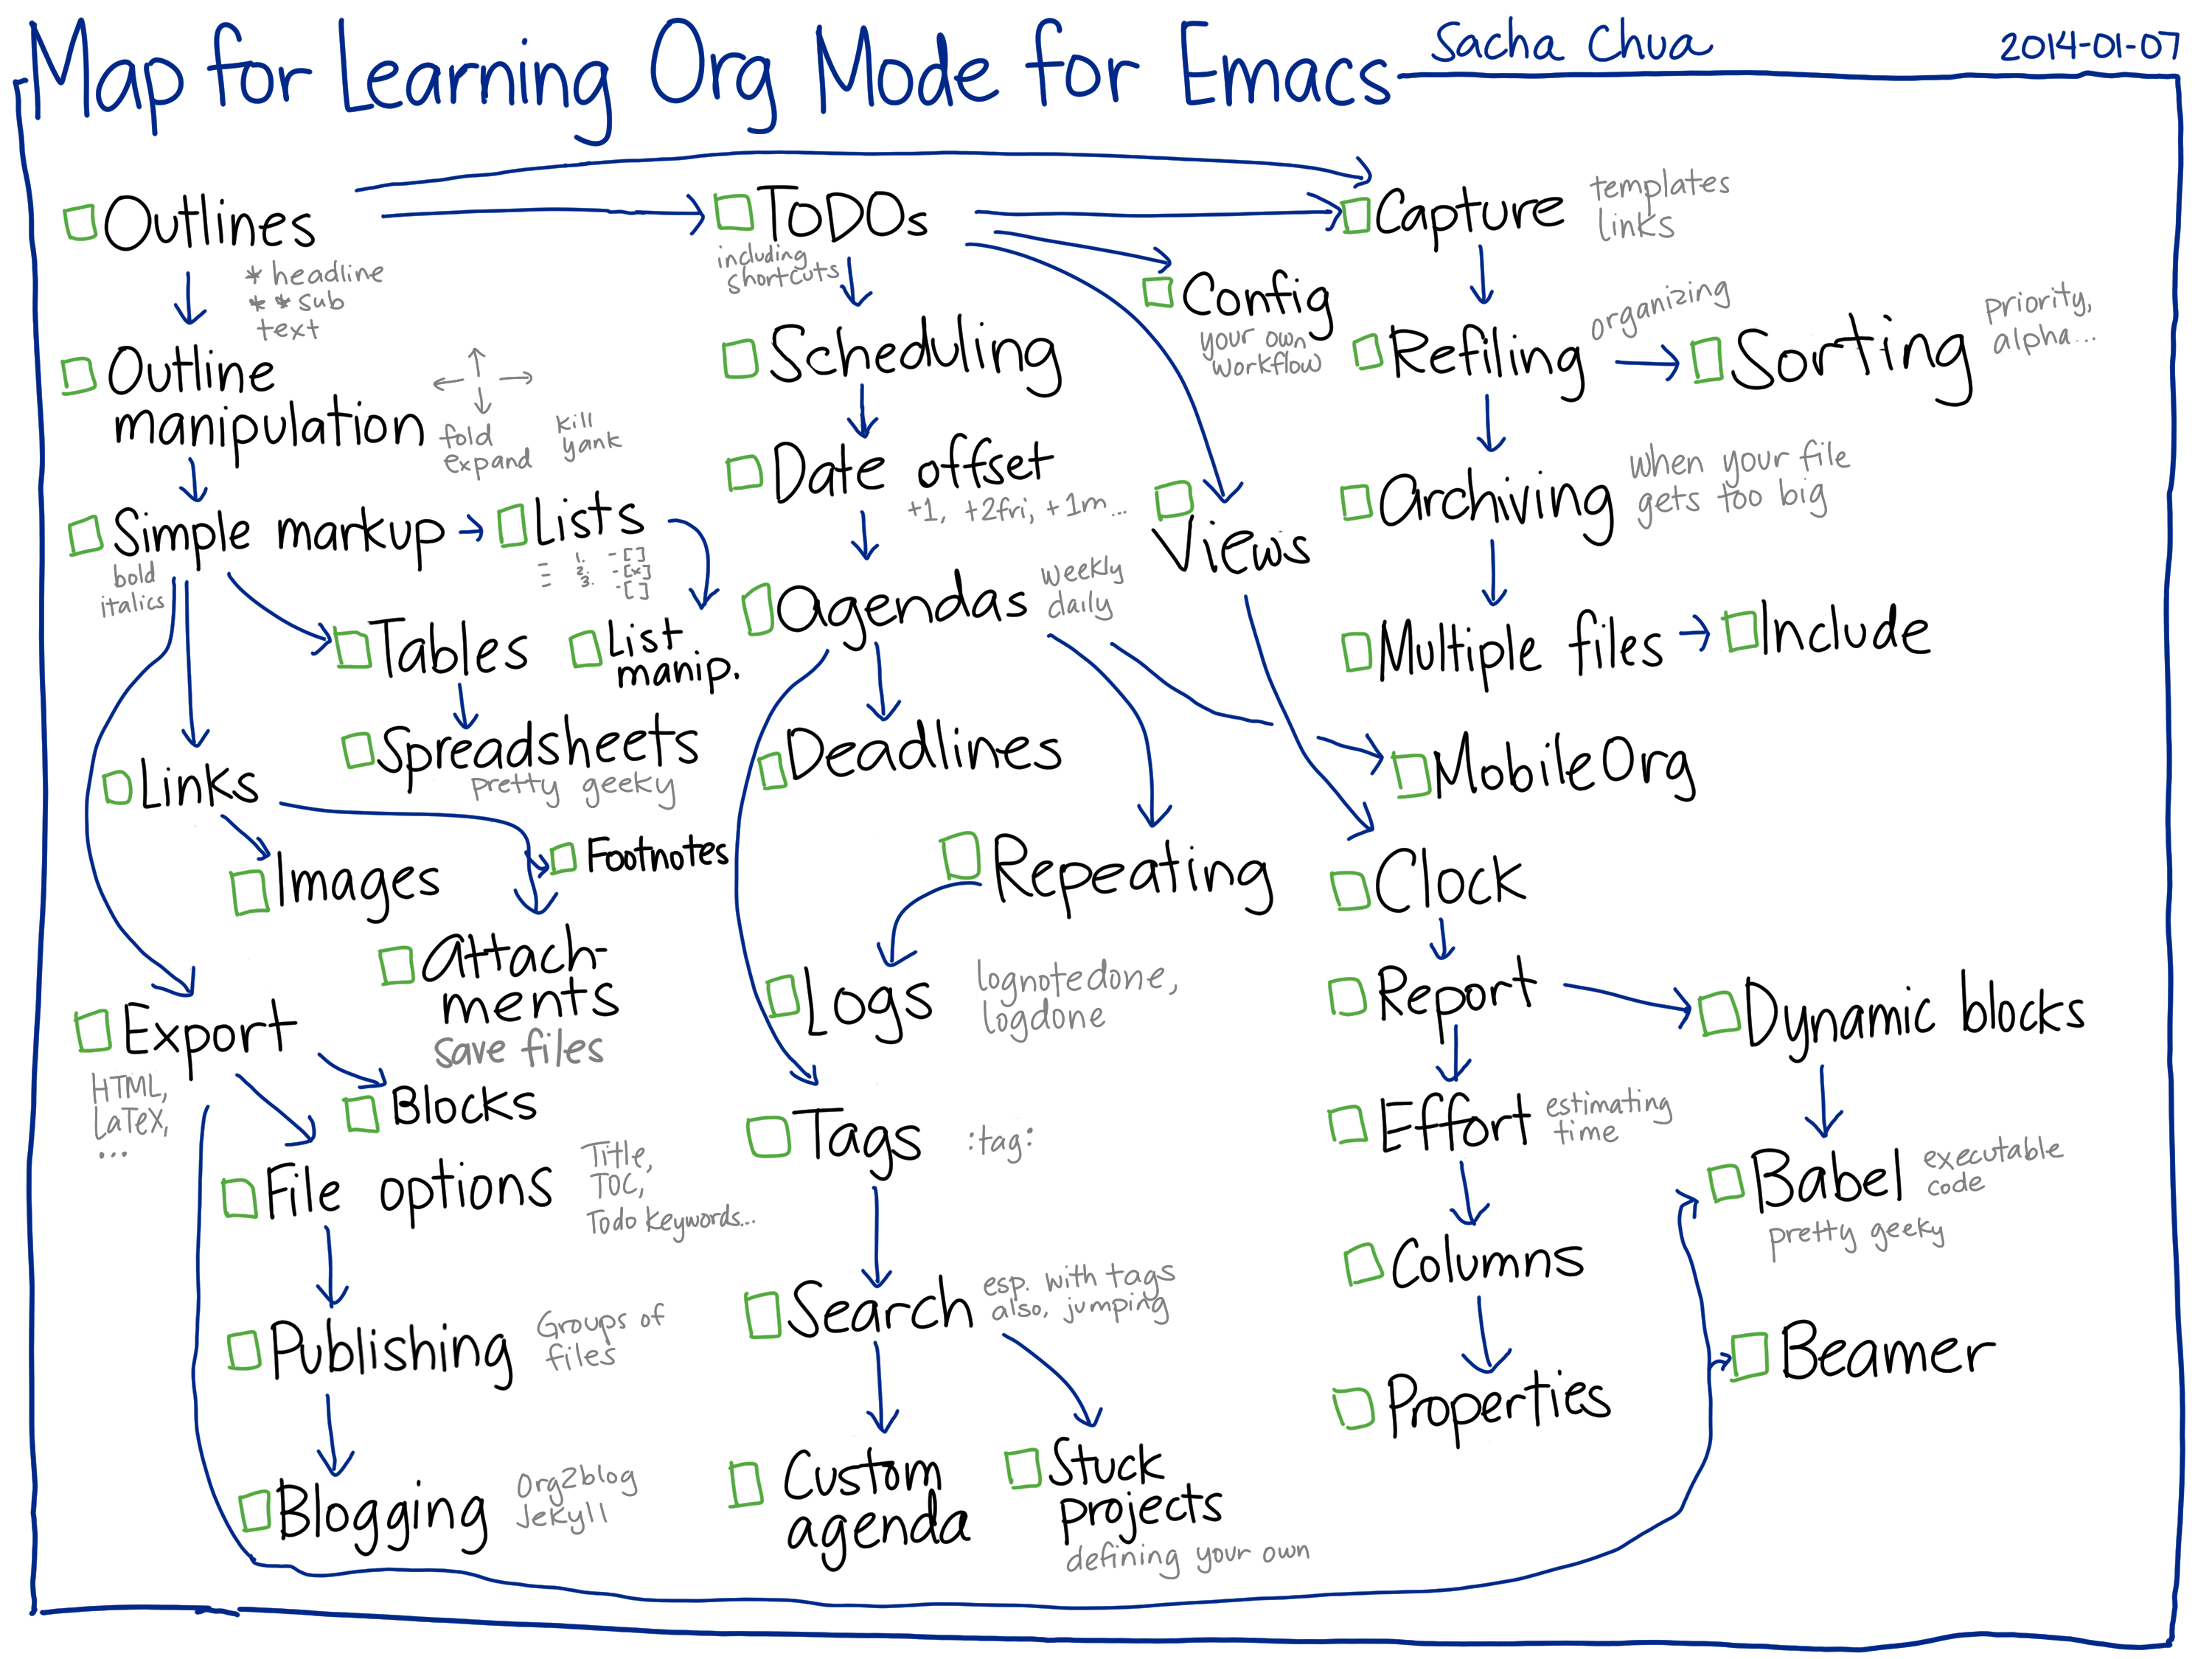 Map for Learning Org Mode for Emacs
Sacha Chua
2014-01-07
Outlines
* headline
* * sub
text
Outline
manipulation
fold
expand
kill
yank
Simple markup
bold
italics
Lists
1.
2.
3.
-[ ]
-[x]
-[ ]
List
manip.
Tables
Spreadsheets
pretty geeky
Links
Images
Footnotes
Attach-
ments
save files
Export
HTML,
LaTeX,
...
Blocks
File options
Title,
TOC,
Todo keywords...
Publishing
Groups of
files
Blogging
Org2blog
Jekyll
TODOs
including
shortcuts
Scheduling
Date offset
+1, +2fri, +1m...
Agendas
weekly
daily
Deadlines
Repeating
Logs
lognotedone,
logdone
Tags
:tag:
Search
esp. with tags
also, jumping
Custom
agenda
Stuck
projects
defining your own
Config
your own
workflow
Views
Capture
templates
links
Refiling
organizing
Sorting
priority,
alpha...
Archiving
when your file
gets too big
Multiple files
Include
MobileOrg
Clock
Report
Dynamic blocks
Effort
estimating
time
Babel
executable
code
pretty geeky
Columns
Beamer
Properties